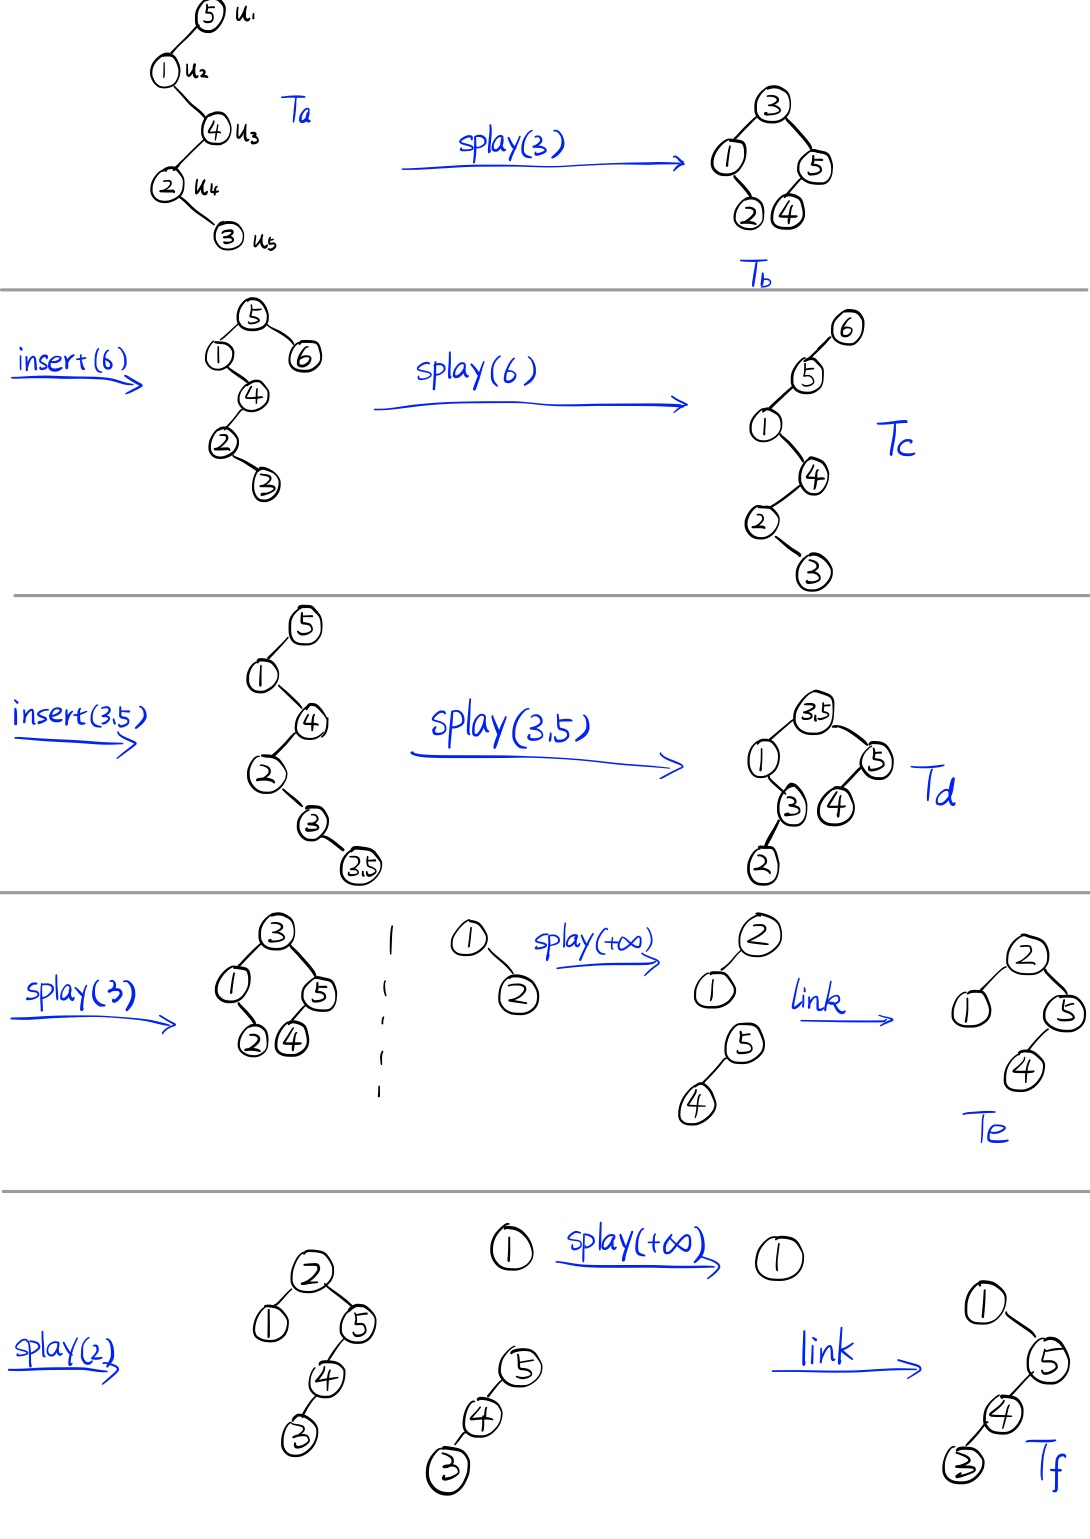 5 u₁
1 u₂
Ta
4 u₃
splay(3)
2 u₄
3 u₅
3
1 5
2 4
Tb
insert(6)
5
1 6
4
2
3
splay(6)
6
5
1
4
2
3
Tc
insert(3.5)
5
1
4
2
3
3.5
splay(3.5)
3.5
1 5
3 4
2
Td
splay(3)
3
1 5
2 4
1
2
splay(+∞)
2
1
5
4
link
2
1 5
4
Te
splay(2)
2
1 5
4
3
1
splay(+∞)
1
5
4
3
link
1
5
4
3
Tf